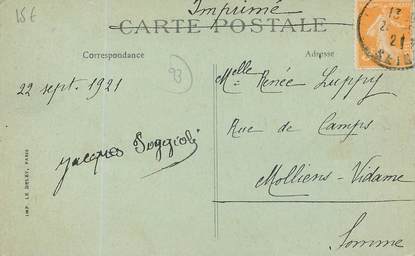 15€
Imprimé
CARTE POSTALE
Correspondance
Adresse
93
22 sept. 1921
Jacques
Melle Renée Luppy
Rue de Camps
Molliens-Vidame
Somme
IMP. LE DELEY, PARIS
13
21